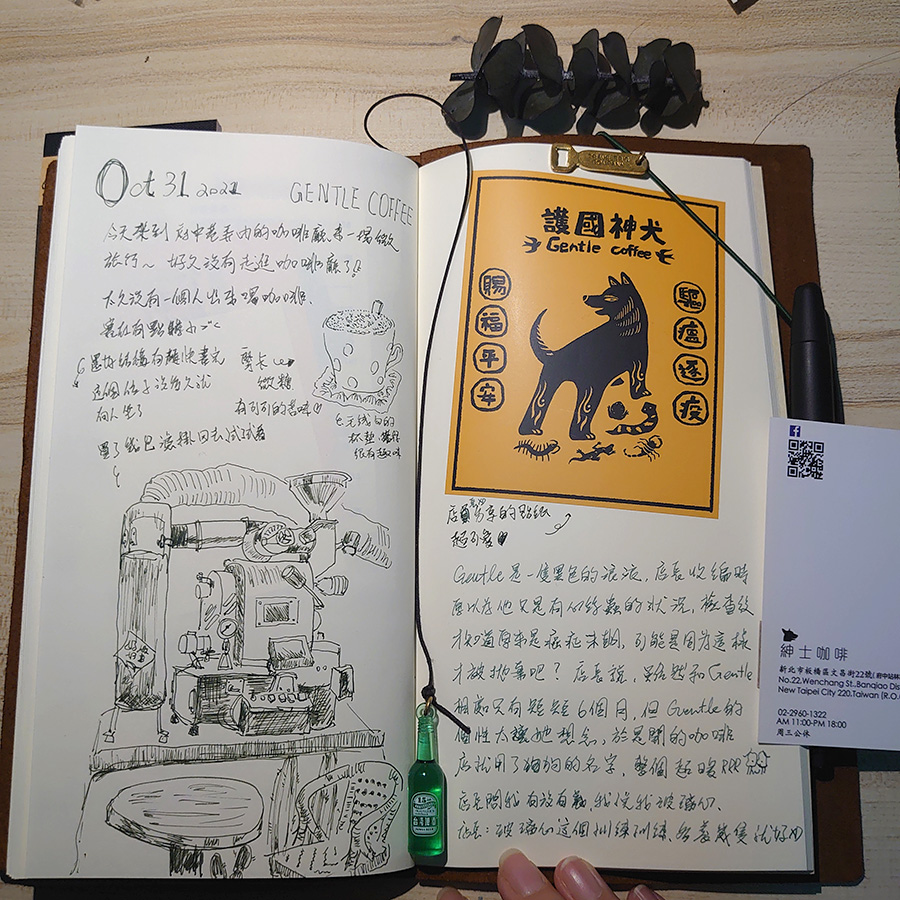 Oct 31 2021
GENTLE COFFEE
今天來到府中巷弄內的咖啡廳,來一場微
旅行~ 好久沒有走進咖啡廳了!!
太久沒有一個人出來喝咖啡、
實在有點
還好結構有
這個位子沒多久就
有人坐了
微糖
有可可的苦味
色毛线勾的
杯墊
很有趣味
買了 包濾掛回去試試看
護國神犬
Gentle coffee
賜福平安
驅瘟逐疫
店長分享的貼紙
超可愛
Gentle 是一隻黑色的浪浪,店長收編時
原以為他只是有心絲蟲的狀況,檢查後
才知道原來是癌症末期,可能是因為這樣
才被拋棄吧?店長說,雖然和Gentle
相處只有短短6個月,但Gentle的
個性太讓她想念,於是開的咖啡
店就用了狗狗的名字,整個超暖
店長問我有沒有養,我說我玻璃心
店長:玻璃心這個訓練訓練,多養幾隻就好
台灣啤酒
紳士咖啡
新北市板橋區文昌街22號(府中站
No.22,Wenchang St.,Banqiao Dis
New Taipei City 220,Taiwan (R.O.
02-2960-1322
AM 11:00-PM 18:00
周三公休